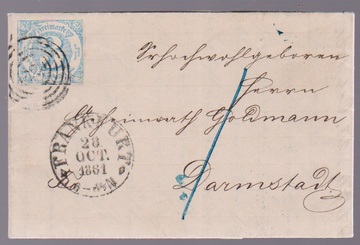 Sr hochwohlgeboren
Herrn
Geheimrath Goldmann
Darmstadt
FRANKFURT
28
OCT.
1861